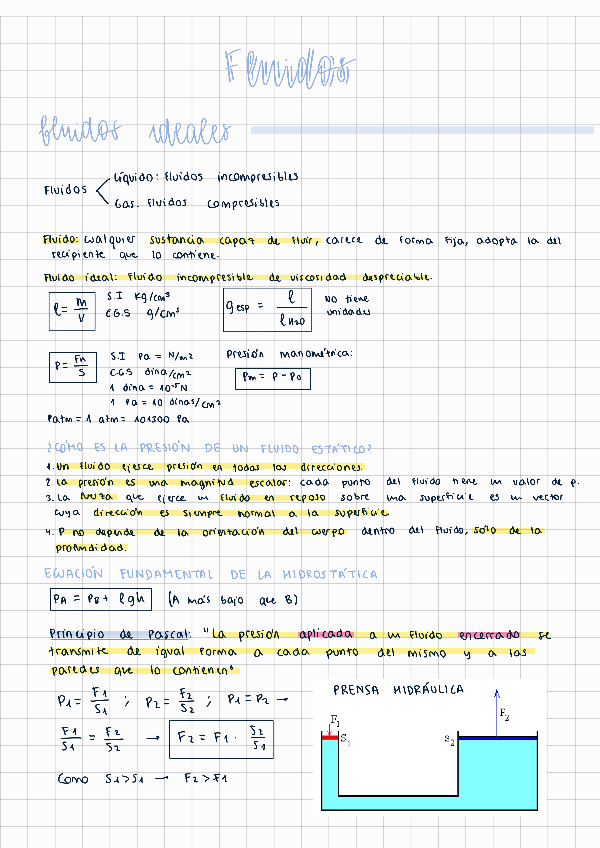 Fluidos
fluidos ideales
Fluidos
Líquido: fluidos incompresibles
Gas. Fluidos compresibles
Fluido: cualquier sustancia capaz de fluir, carece de forma fija, adopta la del
recipiente que lo contiene.
Fluido ideal: Fluido incompresible de viscosidad despreciable.
ρ = m/V
S.I kg/cm³
C.G.S g/cm³
ρesp = ρ/ρH2O
NO tiene
unidades
P = Fn/S
S.I Pa = N/m²
C.G.S dina/cm²
1 dina = 10⁻⁵N
1 Pa = 10 dinas/cm²
Presión manométrica:
Pm = P - P0
Patm = 1 atm = 101300 Pa
¿CÓMO ES LA PRESIÓN DE UN FLUIDO ESTÁTICO?
1. Un fluido ejerce presión en todas las direcciones.
2. La presión es una magnitud escalar: cada punto del fluido tiene un valor de p.
3. La fuerza que ejerce un fluido en reposo sobre una superficie es un vector
cuya dirección es siempre normal a la superficie
4. P no depende de la orientación del cuerpo dentro del fluido, sólo de la
profundidad.
ECUACIÓN FUNDAMENTAL DE LA HIDROSTÁTICA
PA = PB + ρgh (A más bajo que B)
Principio de Pascal: "La presión aplicada a un fluido encerrado se
transmite de igual forma a cada punto del mismo y a las
paredes que lo contienen"
P1 = F1/S1 ; P2 = F2/S2 ; P1 = P2 →
F1/S1 = F2/S2 → F2 = F1 · S2/S1
Como S1 > S1 → F2 > F1
PRENSA HIDRÁULICA
F1
S1
S2
F2